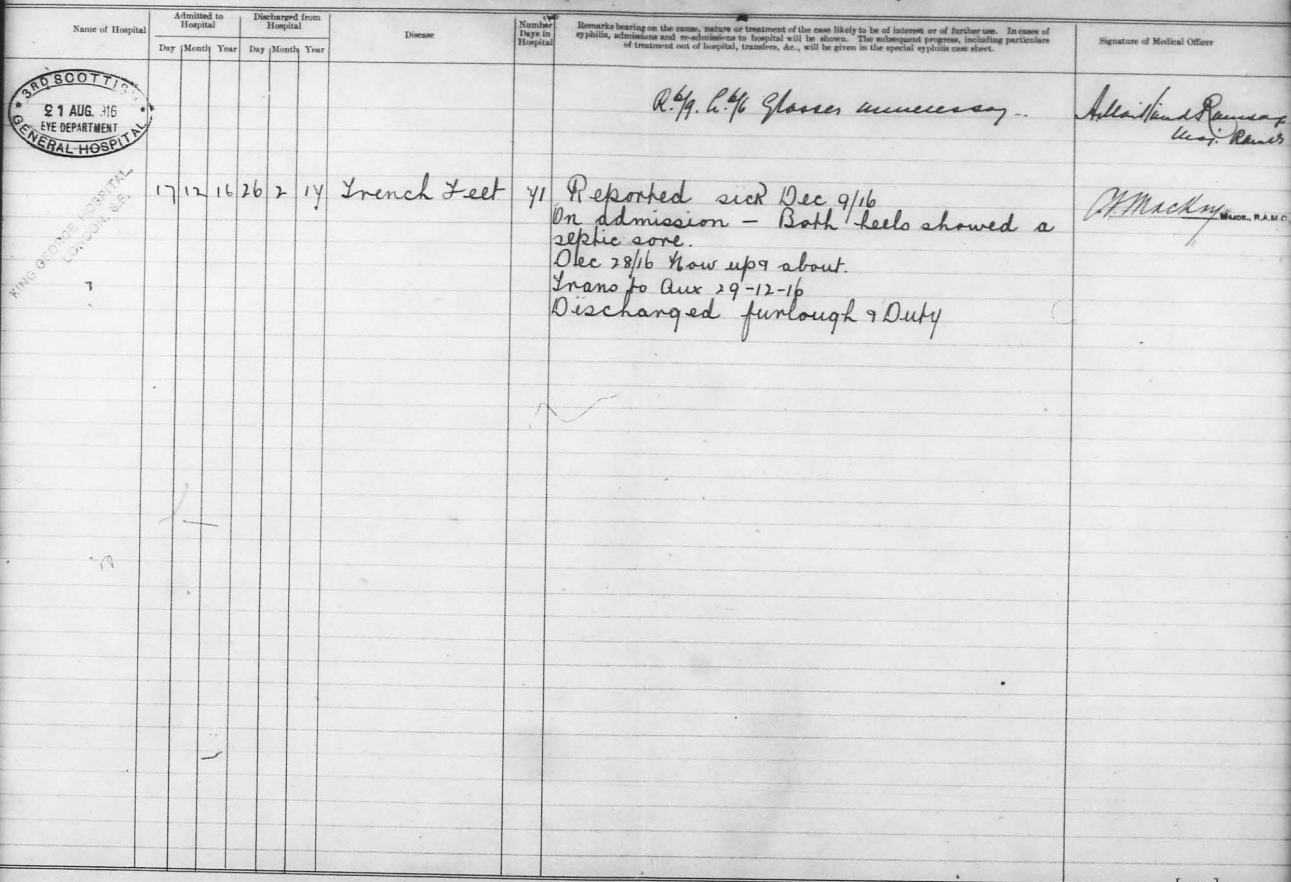 Name of Hospital
Admitted to Hospital
Day Month Year
Discharged from Hospital
Day Month Year
Disease
Number Days in Hospital
Remarks bearing on the cause, nature or treatment of the case likely to be of interest or of further use. In cases of
syphilis, admissions and re-admissions to hospital will be shown. The subsequent progress, including particulars
of treatment out of hospital, transfers, &c., will be given in the special syphilis case sheet.
Signature of Medical Officer
3RD SCOTTISH
21 AUG. 916
EYE DEPARTMENT
GENERAL HOSPITAL
R. 6/9. L. 6/6 Glasses unnecessary
A Maitland Ramsay
Maj. RAMC
KING GEORGE HOSPITAL,
LONDON, S.E.
17 12 16 26 2 17 Trench Feet 71 Reported sick Dec 9/16
On admission — Both heels showed a
septic sore.
Dec 28/16 Now up & about.
Trans to Aux 29-12-16
Discharged furlough & Duty
Mackay
MAJOR, R.A.M.C.